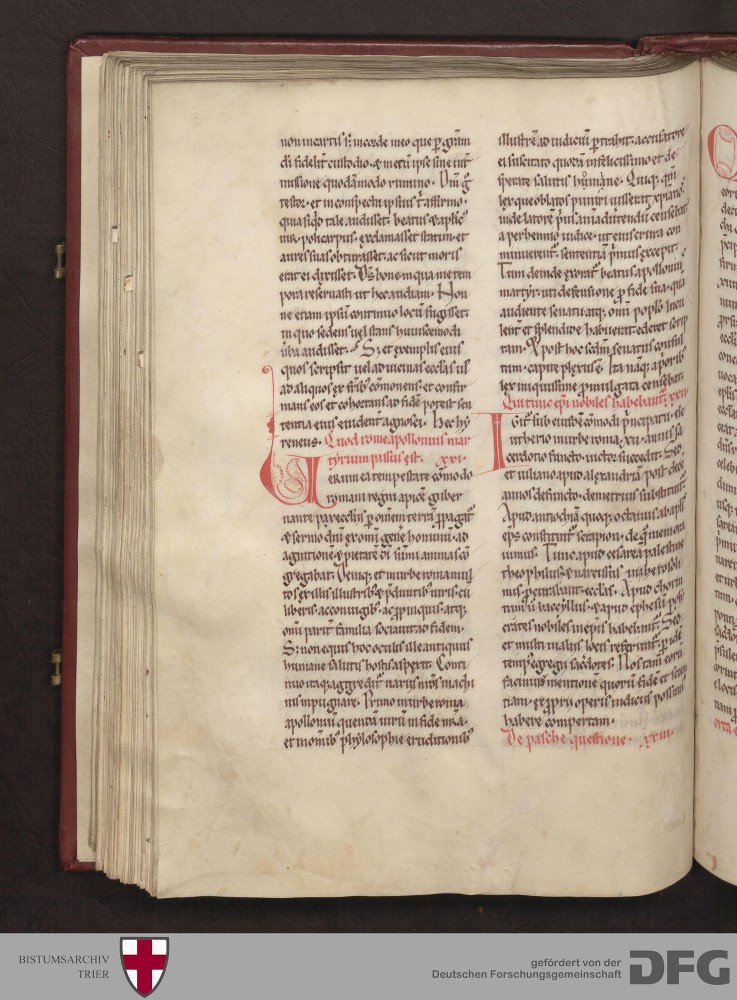 non in cartis sꝫ in corde meo que ꝑ gr̄am
dī fidelit̄ custodio ⁊ metū ipse sine int̄
missione quodāmodo rumino. Dm̄ ḡ
testor. et in conspectu ipsius t̄ affirmo.
quia siqd̄ tale audisset beatus ⁊ aplīc
uir policarpus. exclamasset statim et
aures suas obturasset. ac sicut moris
erat ei dixisset. Dꝰ bone in qua me tem
pora reseruasti ut hec audiam. Non
ne etiam ipsū continuo locū fugisset.
in quo sedens uel stans huiuscemodi
ūba audisset. Sꝫ et exemplis eius
quos scripsit uel ad uicinas ecclās ul̄
ad aliquos ex frībꝰ cōmonens. et confir
mans eos et cohortans ad fidē potest sen
tentia eius euident̄ agnosci. Hec hy
reneus. Quod rome apollonius mar
tyrium passus est. xxi.
Uerum ea tempestate cōmodo
romani regni apicē guber
nante pax ecclīis ꝑ omēm terrā ꝓpagat̄
⁊ sermo dn̄i ex omi gēne hominū. ad
agnitionē ⁊ pietatē dī sūmi animas cō
gregabat. Deniqꝫ et in urbe roma mul
tos ex illis illustribꝰ ⁊ p̄diuitibꝰ uiris. cū
liberis. ac coniugibꝰ. ac ꝓpinquis. atqꝫ
om̄i parit̄ familia sociauit ad fidem.
Sꝫ non equis hoc oculis ille antiquus
humane salutis hostis aspexit. Conti
nuo itaqꝫ aggredit̄ uariis nr̄os machi
nis impugnare. Primo in urbe roma
apollonīu quendā uirū in fide nr̄a.
et in omībꝰ phylosophie eruditionibꝰ
illustrē ad iudiciū ꝑtrahit. accusatore
ei suscitato quodā infelicissimo et de
sperate salutis homine. Quiqꝫ qm̄
lex que oblatos puniri iusserat xp̄ianos.
inde latorē p̄us animaduertendū censebat.
a perhennio iudice. ut ei us crura con
minuerent̄. sententiā p̄mus excepit.
Tum deinde exorat̄ beatus apollonius
martyr. uti defensionē ꝓ fide sua. qua
audiente senatu atqꝫ om̄i poplo lucu
lent̄ et splendide habuerat ederet scrip
tam. Et post hoc scdm̄ senatus consul
tum. capite plexus ē. Ita naqꝫ a priorībꝰ
lex iniquissime ꝓmulgata censebat.
Qui tunc epī nobiles habebant̄. xxii
Igit̄ sub eiusdē cōmodi p̄ncipatu. ele
utherio in urbe roma. xii. annis sa
cerdotio functo. uictor succedit. Sed
et iuliano apud alexandriā post decē
annos defuncto. demetrius substituit̄.
Apud antiochiā quoqꝫ octauus ab aplīs
epīs constituit̄ serapion. de quo meminī
uimus. Tunc apud cesarea palestine
theophilus. ⁊ narcissus in hierosoli
mis ꝑcurabant ecclās. Apud chorin
tum ū bacchyllus. ⁊ apud ephesū poly
crates nobiles in epīs habebant̄. Sed
et multi in aliis locis referunt̄ ꝑ idē
temp̄ egregii sacdotes. Nos tam̄ eorū
facimus mentionē quorū fide et scrip
tiam. ex ꝓpriī operis indiciis possumus
habere compertam.
De pasche questione. xxiii.
BISTUMSARCHIV
TRIER
gefördert von der
Deutschen Forschungsgemeinschaft
DFG